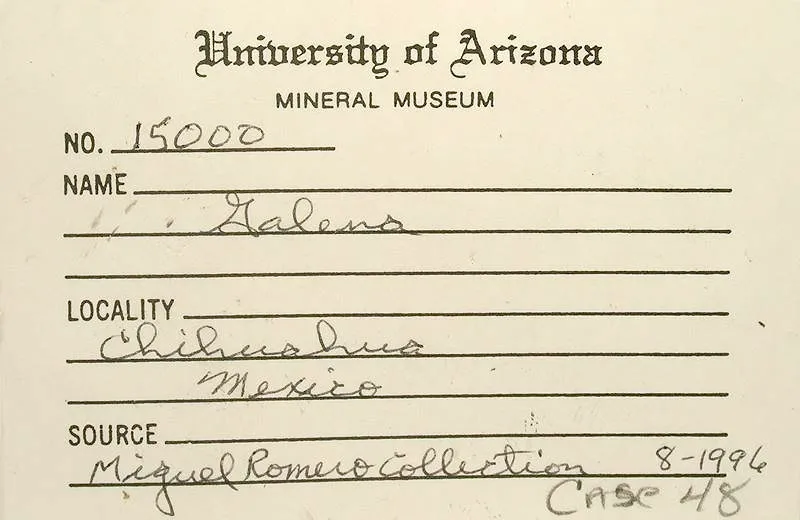 University of Arizona
MINERAL MUSEUM
NO. 15000
NAME
Galena
LOCALITY
Chihuahua
Mexico
SOURCE
Miguel Romero Collection 8-1996
CASE 48